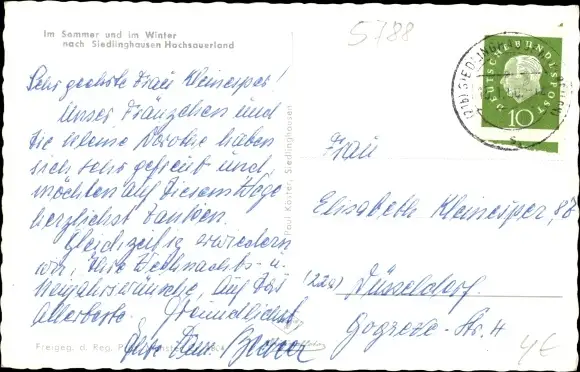 Im Sommer und im Winter
nach Siedlinghausen Hochsauerland
5788
Sehr geehrte Frau Kleinesper!
Unser Fränzchen und
die kleine Dorothe haben
sich sehr gefreut und
möchten auf diesem Wege
herzlichst danken.
Gleichzeitig erwiedern
wir, Ihre Weihnachts- u.
Neujahrswünsche, auf das
Allerbeste. Freundlichst
Ihre Fam. Becker
Freigeg. d. Reg.
Paul Köster, Siedlinghausen
DEUTSCHE BUNDESPOST
10
Frau
Elisabeth Kleinesper,
(22a) Düsseldorf
Str. 4
4€